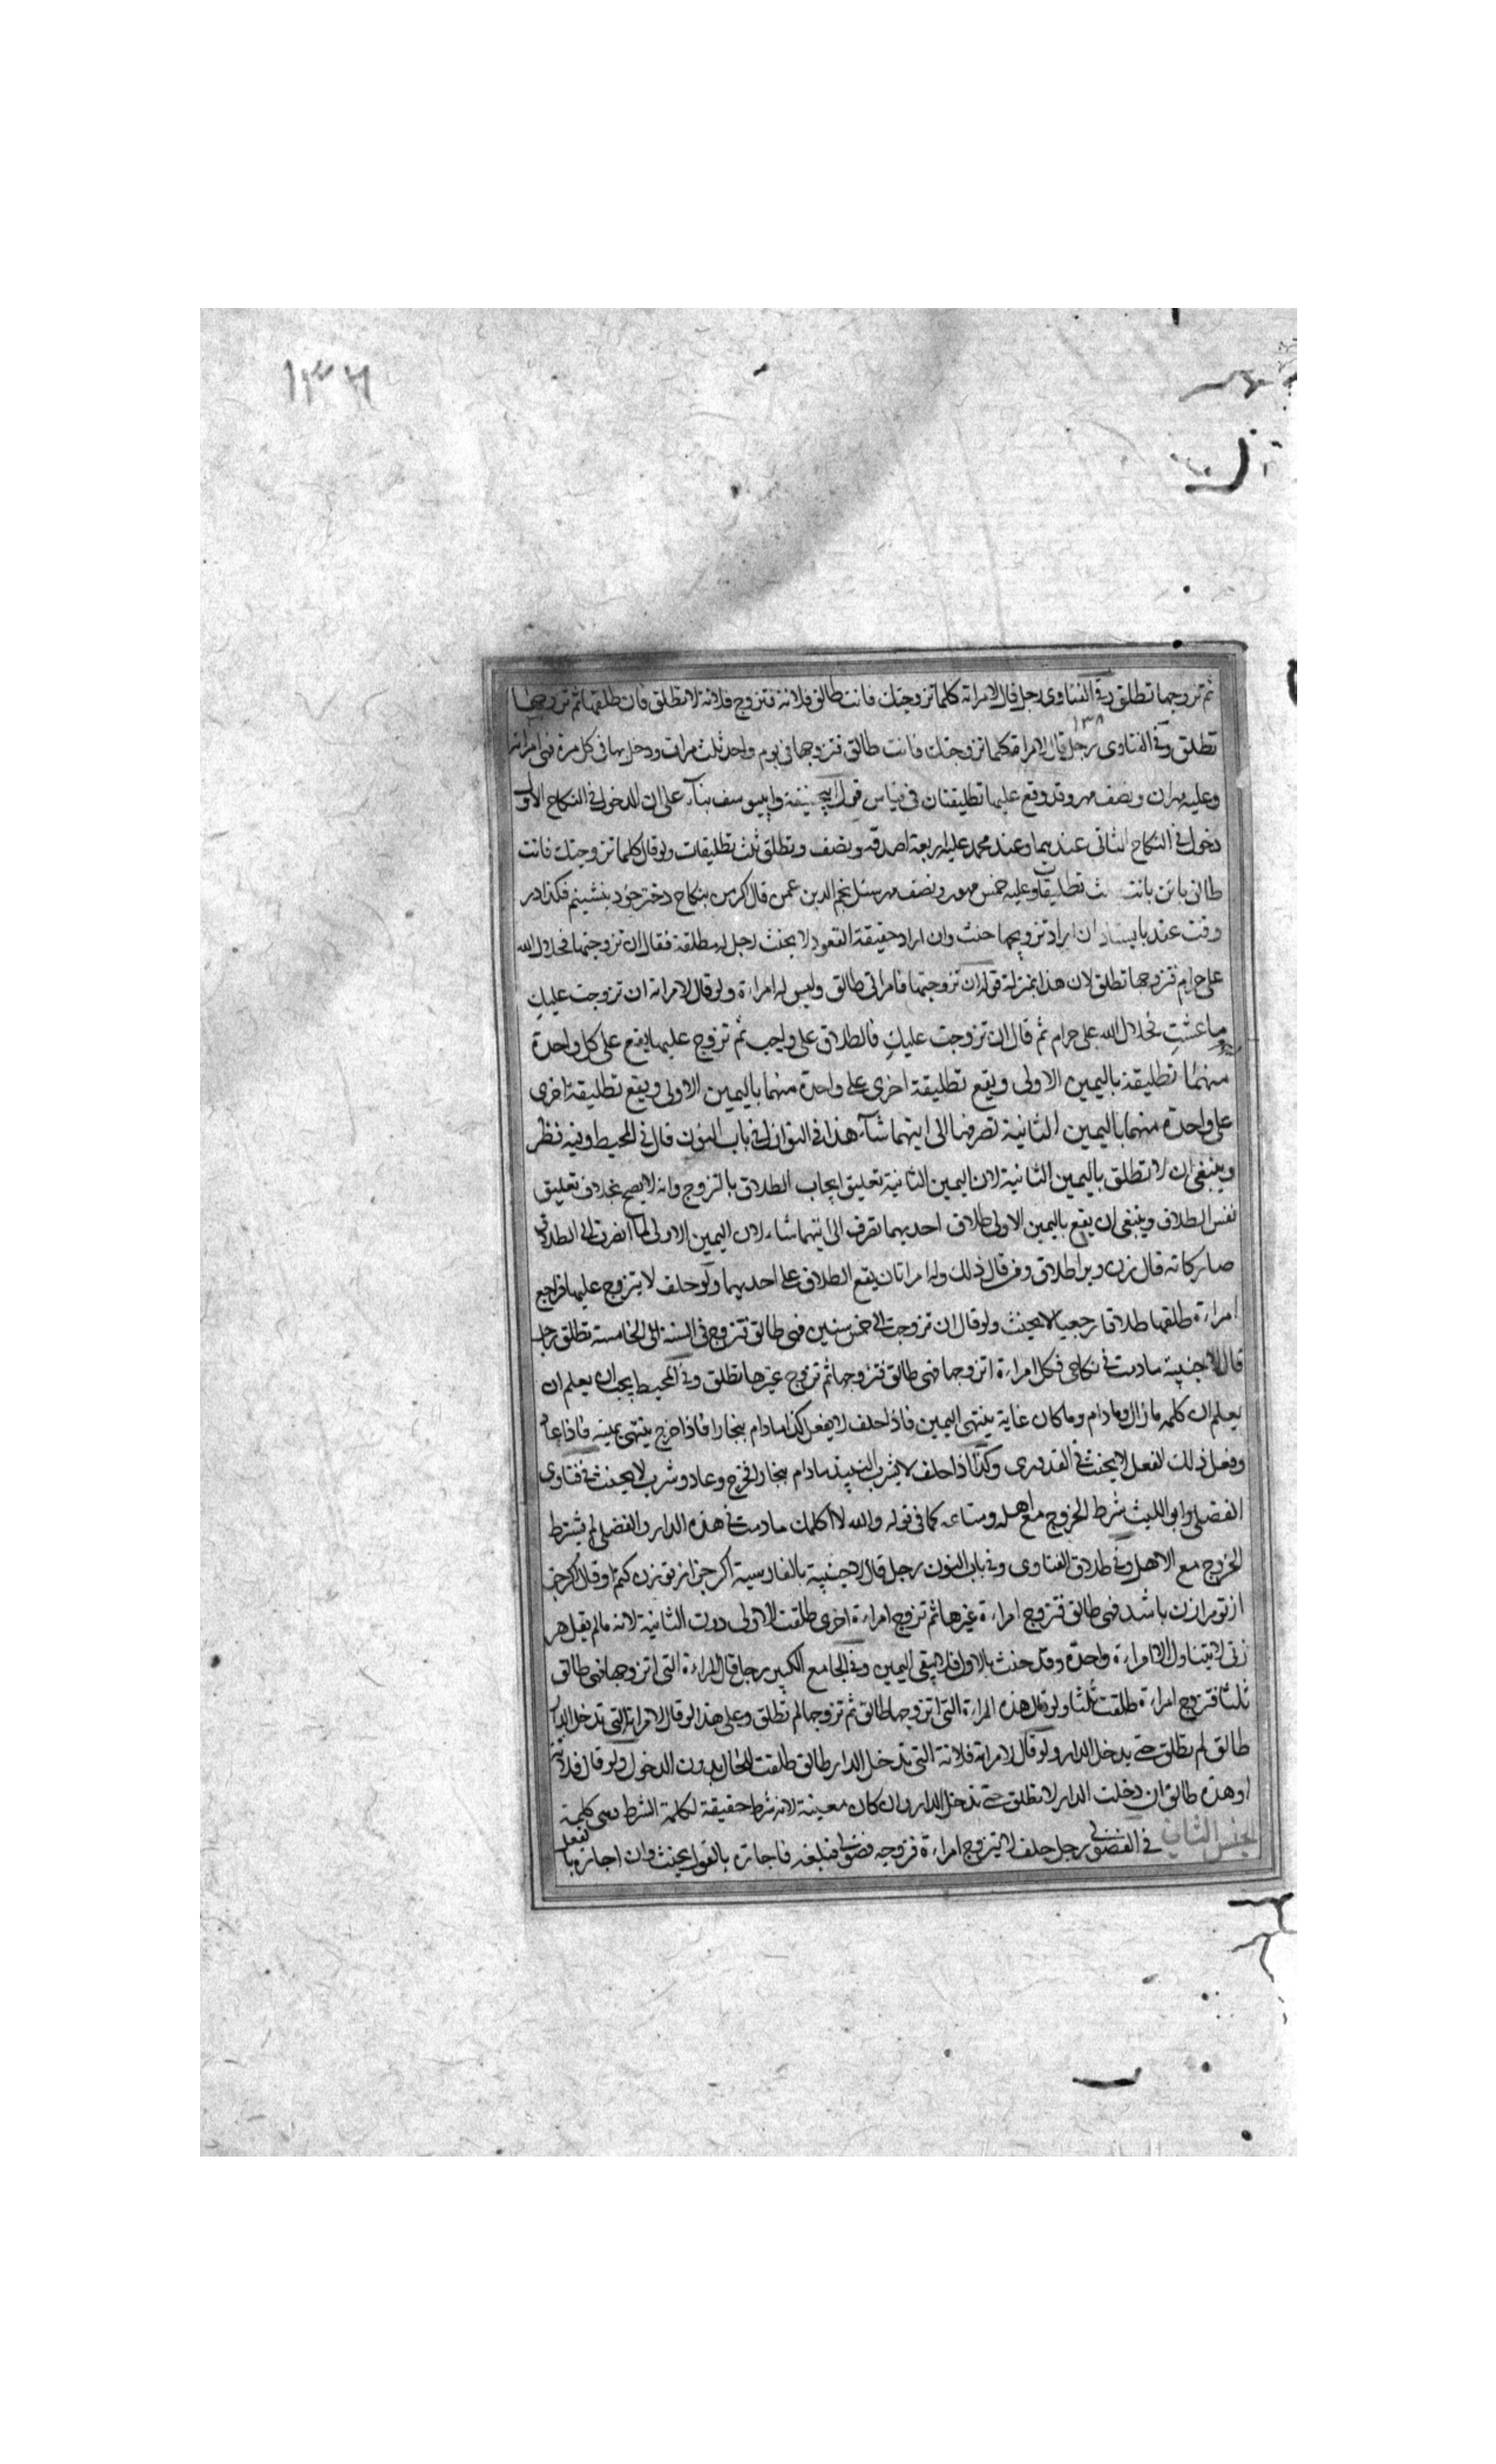 ١٣٦
ثم تزوجها تطلق وفى الفتاوى رجل قال لامراته كلما تزوجتك فانت طالق فلانة فتزوج فلانة لا تطلق فان طلقها ثم تزوجها
١٣٨
تطلق وفى الفتاوى رجل قال لامراة كلما تزوجتك فانت طالق فتزوجها فى يوم واحد ثلث مرات ودخل بها فى كل مرة فهى امراته
وعليه مهران ونصف مهر وقد وقع عليها تطليقتان فى قياس قول ابيحنيفة وابيوسف بناء على ان الدخول فى النكاح الاول
دخول فى النكاح الثانى عندهما وعند محمد عليه اربعة اصدقة ونصف وتطلق ثلث تطليقات ولو قال كلما تزوجتك فانت
طالق بائن بانت تطليقات وعليه خمس مهور ونصف مهر سئل نجم الدين عمن قال كرمن بنكاح دختر خود بنشينم فكذا در
وقت عقد بايستاد ان اراد تزويجها حنث وان اراد حقيقة القعود لا يحنث رجل له مطلقة فقال ان تزوجتها فحلال الله
على حرام فتزوجها تطلق لان هذا بمنزلة قوله ان تزوجتها فامراتى طالق وليس له امراءة ولو قال لامراته ان تزوجت عليك
ما عشت فحلال الله على حرام ثم قال ان تزوجت عليك فالطلاق على واجب ثم تزوج عليها يقع على كل واحدة
منهما تطليقة باليمين الاولى ويقع تطليقة اخرى على واحدة منهما باليمين الاولى ويقع تطليقة اخرى
على واحدة منهما باليمين الثانية تصرفها الى ايتهما شاء هذا فى النوازل فى باب النون قال فى المحيط وفيه نظر
وينبغى ان لا تطلق باليمين الثانية لان اليمين الثانية تعليق ايجاب الطلاق بالتزوج وانه لا يصح بخلاف تعليق
نفس الطلاق وينبغى ان يقع باليمين الاولى طلاق احديهما تصرف الى ايتهما شاء لان اليمين الاولى لما انصرف الى الطلاق
صار كانه قال زن ويرا طلاق ومن قال ذلك وله امراتان يقع الطلاق على احديهما ولو حلف لا يتزوج عليها فراجع
امراءة طلقها طلاقا رجعيا لا يحنث ولو قال ان تزوجت الى خمس سنين فهى طالق فتزوج فى السنة الخامسة تطلق رجل
قال لاجنبية ما دمت فى نكاحى فكل امراءة اتزوجها فهى طالق فتزوجها ثم تزوج غيرها تطلق وفى المحيط يجب ان يعلم ان
يعلم ان كلمة ما زال وما دام وما كان غاية ينتهى اليمين فاذا حلف لا يفعل كذا ما دام ببخارا فاذا خرج ينتهى يمينه فاذا عاد
وفعل ذلك الفعل لا يحنث فى القدورى وكذا اذا حلف لا يشرب النبيذ ما دام ببخارا فخرج وعاد وشرب لا يحنث فى فتاوى
الفضلى وابو الليث شرط الخروج مع اهله ومتاعه كما فى قوله والله لا اكلمك ما دمت فى هذه الدار والفضلى لم يشترط
الخروج مع الاهل وفى طلاق الفتاوى وفى باب النون رجل قال لاجنبية بالفارسية اكر جز از تو زن كنم او قال اكر جز
از تو مرا زن باشد فهى طالق فتزوج امراءة غيرها ثم تزوج امراءة اخرى طلقت الاولى دون الثانية لانه ما لم يقل هر
زنى لا يتناول الا امراءة واحدة وقد حنث بالاولى فلا يبقى اليمين وفى الجامع الكبير رجل قال المراءة التى اتزوجها فهى طالق
ثلثا فتزوج امراءة طلقت ثلثا ولو قال هذه المراءة التى اتزوجها طالق ثم تزوجها لم تطلق وعلى هذا لو قال لامراته التى تدخل الدار
طالق لم تطلق حتى يدخل الدار ولو قال لامراته فلانة التى تدخل الدار طالق طلقت للحال بدون الدخول ولو قال فلانة
او هذه طالق ان دخلت الدار لا تطلق حتى تدخل الدار وان كان معينة لانه شرط حقيقة لكلمة الشرط
الجنس الثانى فى الفضولى رجل حلف لا يتزوج امراءة فزوجه فضولى فبلغه فاجازه بالقول يحنث وان اجازه بالفعل